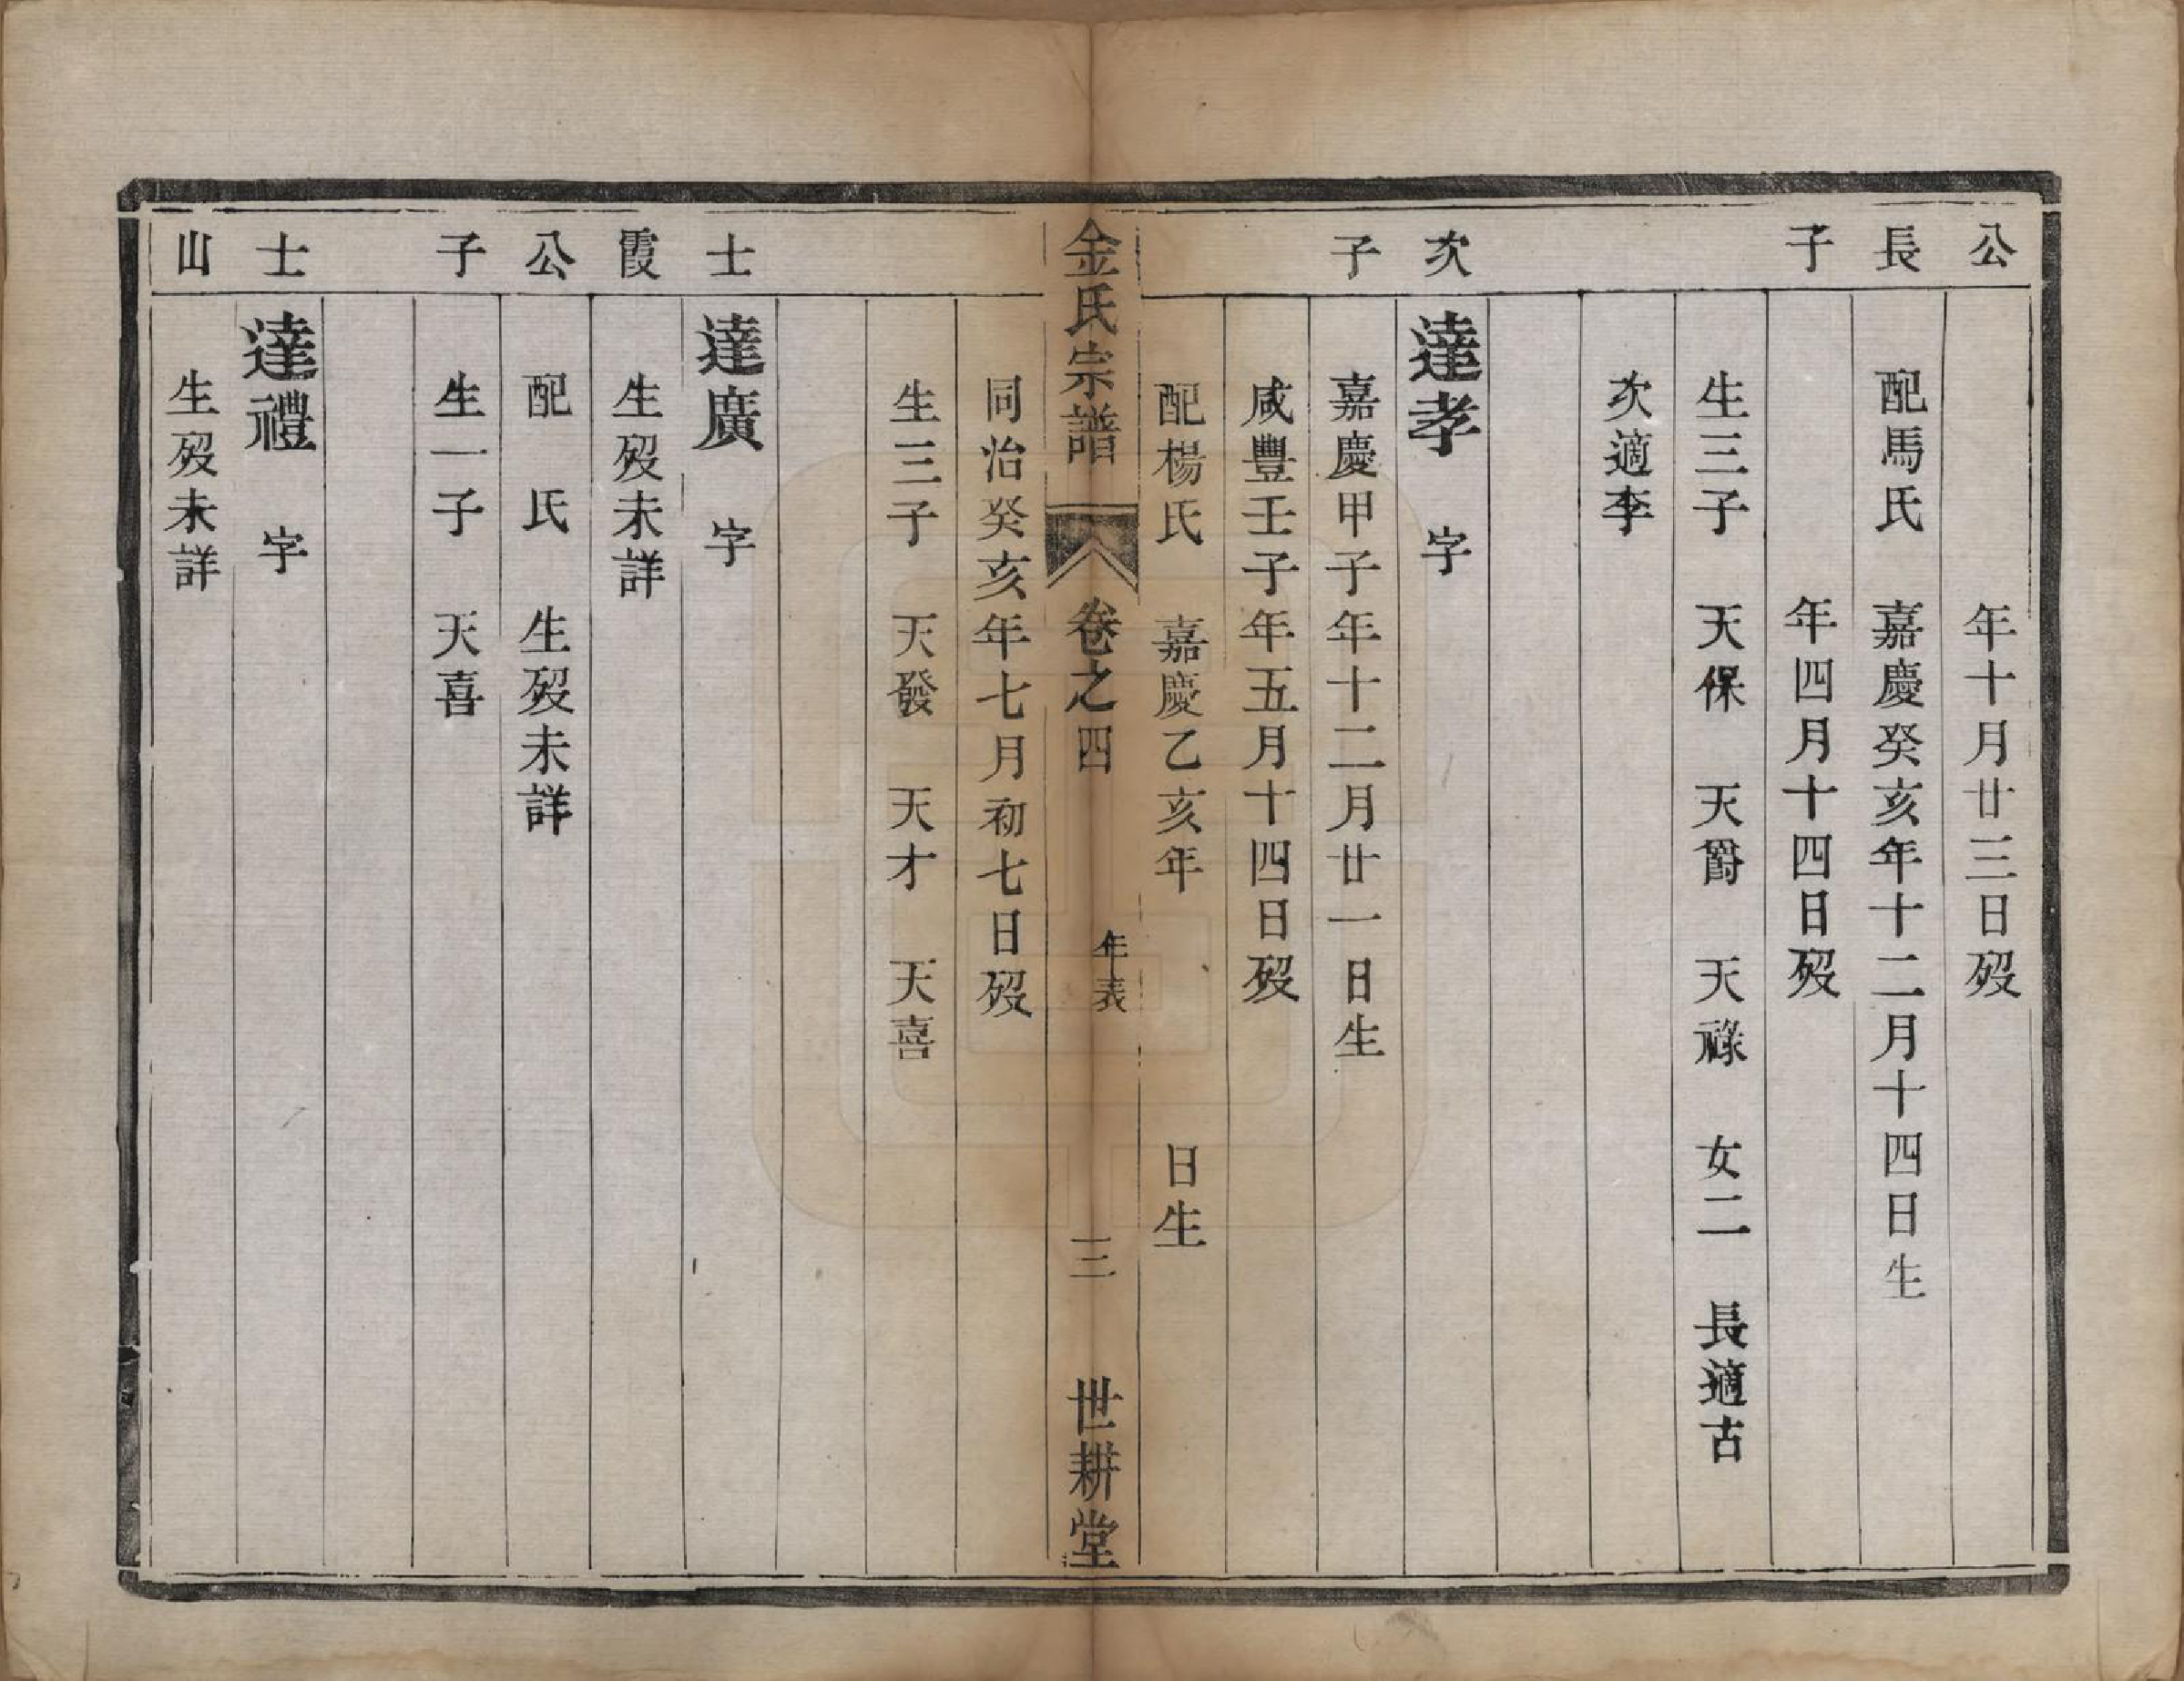 公　年十月廿三日歿
長　配馬氏　嘉慶癸亥年十二月十四日生
子　年四月十四日歿
生三子　天保　天爵　天祿　女二　長適古
次適李
次　達孝　字
子　嘉慶甲子年十二月廿一日生
咸豐壬子年五月十四日歿
配楊氏　嘉慶乙亥年　日生
金氏宗譜　卷之四　年表　三　世耕堂
同治癸亥年七月初七日歿
生三子　天發　天才　天喜
士　達廣　字
霞　生歿未詳
公　配　氏　生歿未詳
子　生一子　天喜
士　達禮　字
山　生歿未詳